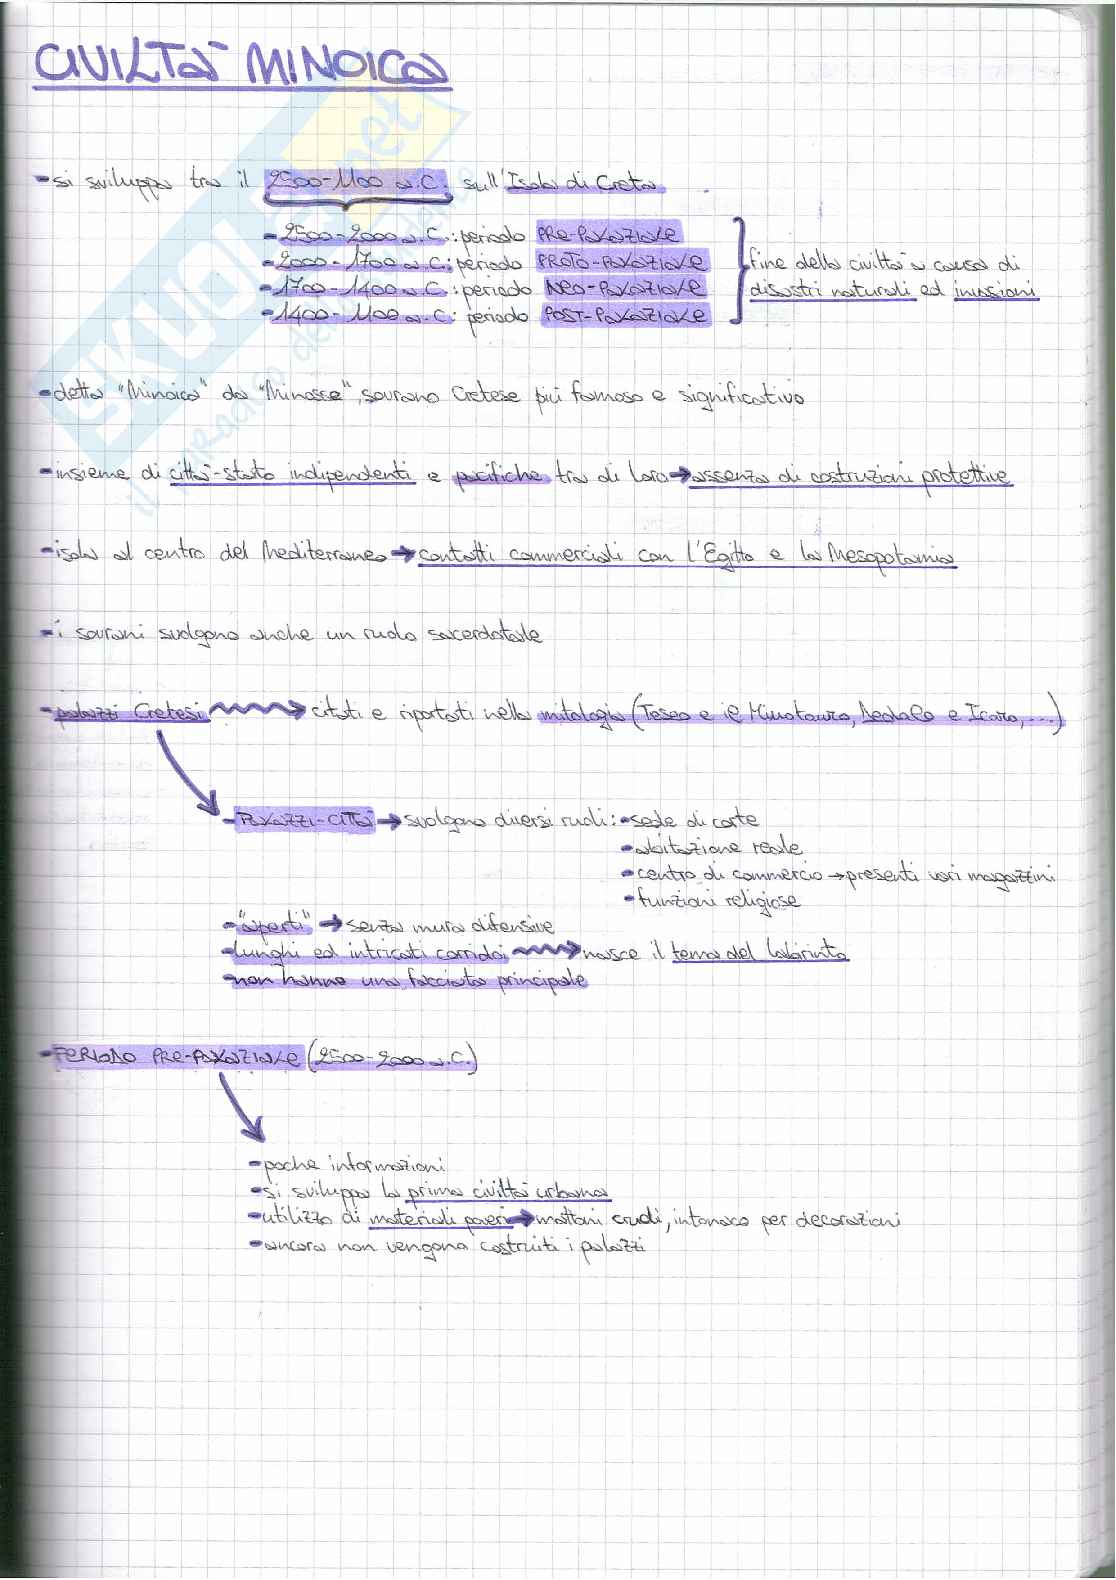 CIVILTÀ MINOICA
-si sviluppa tra il 2500-1100 a.C. sull'Isola di Creta
-2500-2000 a.C.: periodo PRE-PALAZIALE
-2000-1700 a.C.: periodo PROTO-PALAZIALE
-1700-1400 a.C.: periodo NEO-PALAZIALE
-1400-1100 a.C.: periodo POST-PALAZIALE
fine della civiltà a causa di
disastri naturali ed invasioni
-detta "Minoica" da "Minosse", sovrano Cretese più famoso e significativo
-insieme di città-stato indipendenti e pacifiche tra di loro→assenza di costruzioni protettive
-isola al centro del Mediterraneo→contatti commerciali con l'Egitto e la Mesopotamia
-i sovrani svolgono anche un ruolo sacerdotale
-palazzi Cretesi→citati e riportati nella mitologia (Teseo e il Minotauro, Dedalo e Icaro, ...)
-PALAZZI-CITTÀ→svolgono diversi ruoli: -sede di corte
-abitazione reale
-centro di commercio→presenti vari magazzini
-funzioni religiose
-"aperti"→senza mura difensive
-lunghi ed intricati corridoi→nasce il tema del labirinto
-non hanno una facciata principale
-PERIODO PRE-PALAZIALE (2500-2000 a.C.)
-poche informazioni
-si sviluppa la prima civiltà urbana
-utilizzo di materiali poveri→mattoni crudi, intonaco per decorazioni
-ancora non vengono costruiti i palazzi